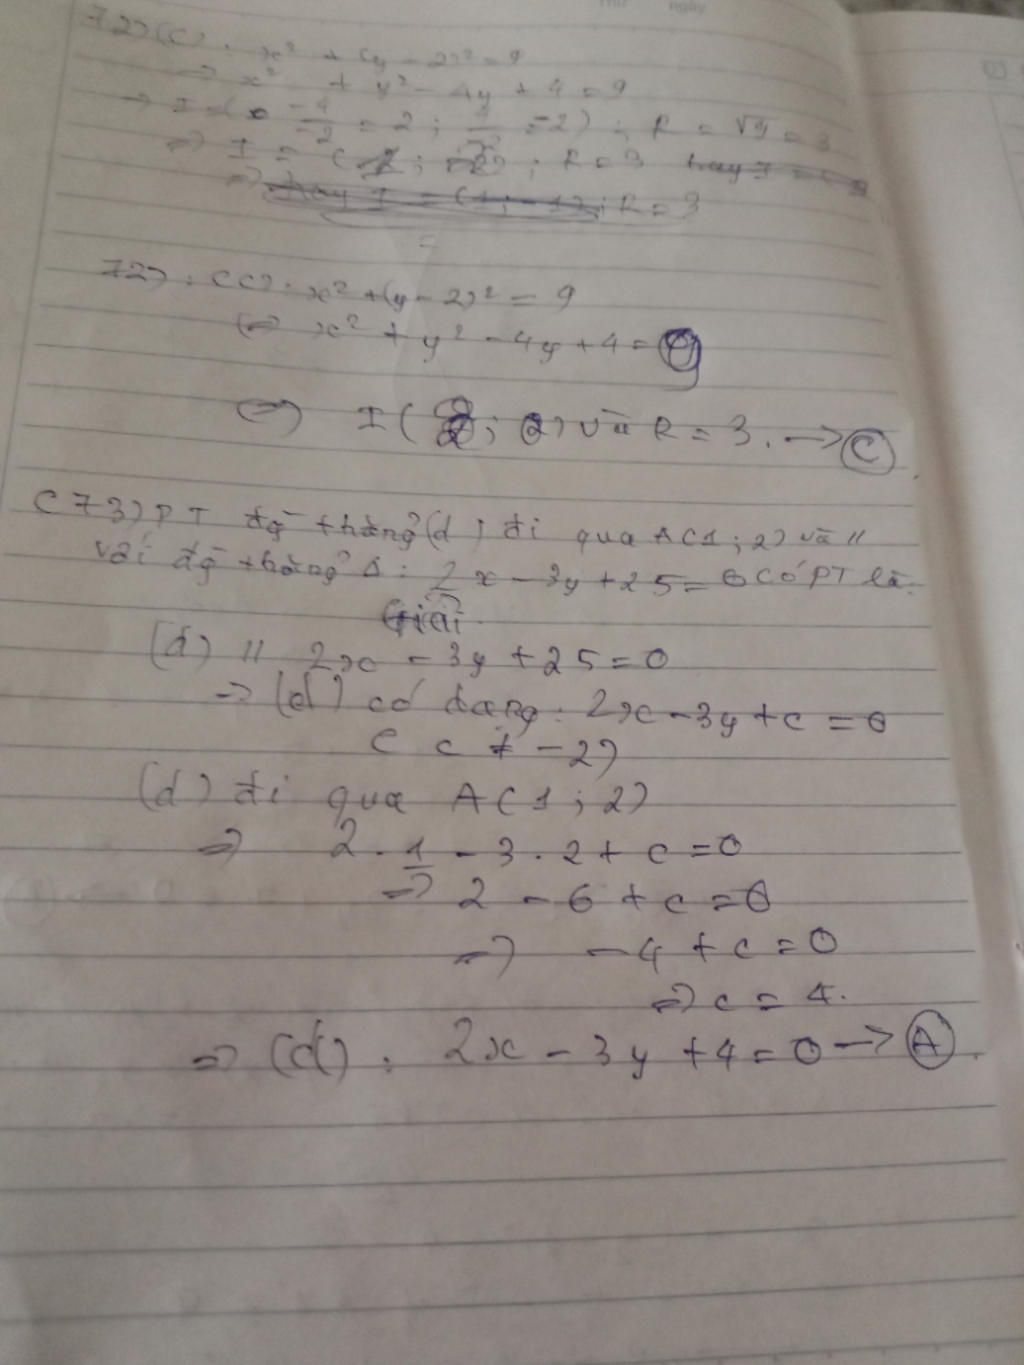 72) (C): x² + (y - 2)² = 9
=> x² + y² - 4y + 4 = 9
-4/-2 = 2 ; = -2) ; R = √9 = 3
=> I = ( ; ) ; R = 3
R = 3
72): (C): x² + (y - 2)² = 9
(=> x² + y² - 4y + 4 = 9
=> I ( ; 2) và R = 3. -> C
C73) PT đg thẳng (d) đi qua A(1; 2) và //
với đg thẳng Δ: 2x - 3y + 25 = 0 có PT là:
Giải
(d) // 2x - 3y + 25 = 0
-> (d) có dạng: 2x - 3y + c = 0
( c ≠ -2)
(d) đi qua A(1; 2)
=> 2 . 1 - 3 . 2 + c = 0
=> 2 - 6 + c = 0
=> -4 + c = 0
=> c = 4.
=> (d): 2x - 3y + 4 = 0 -> A.